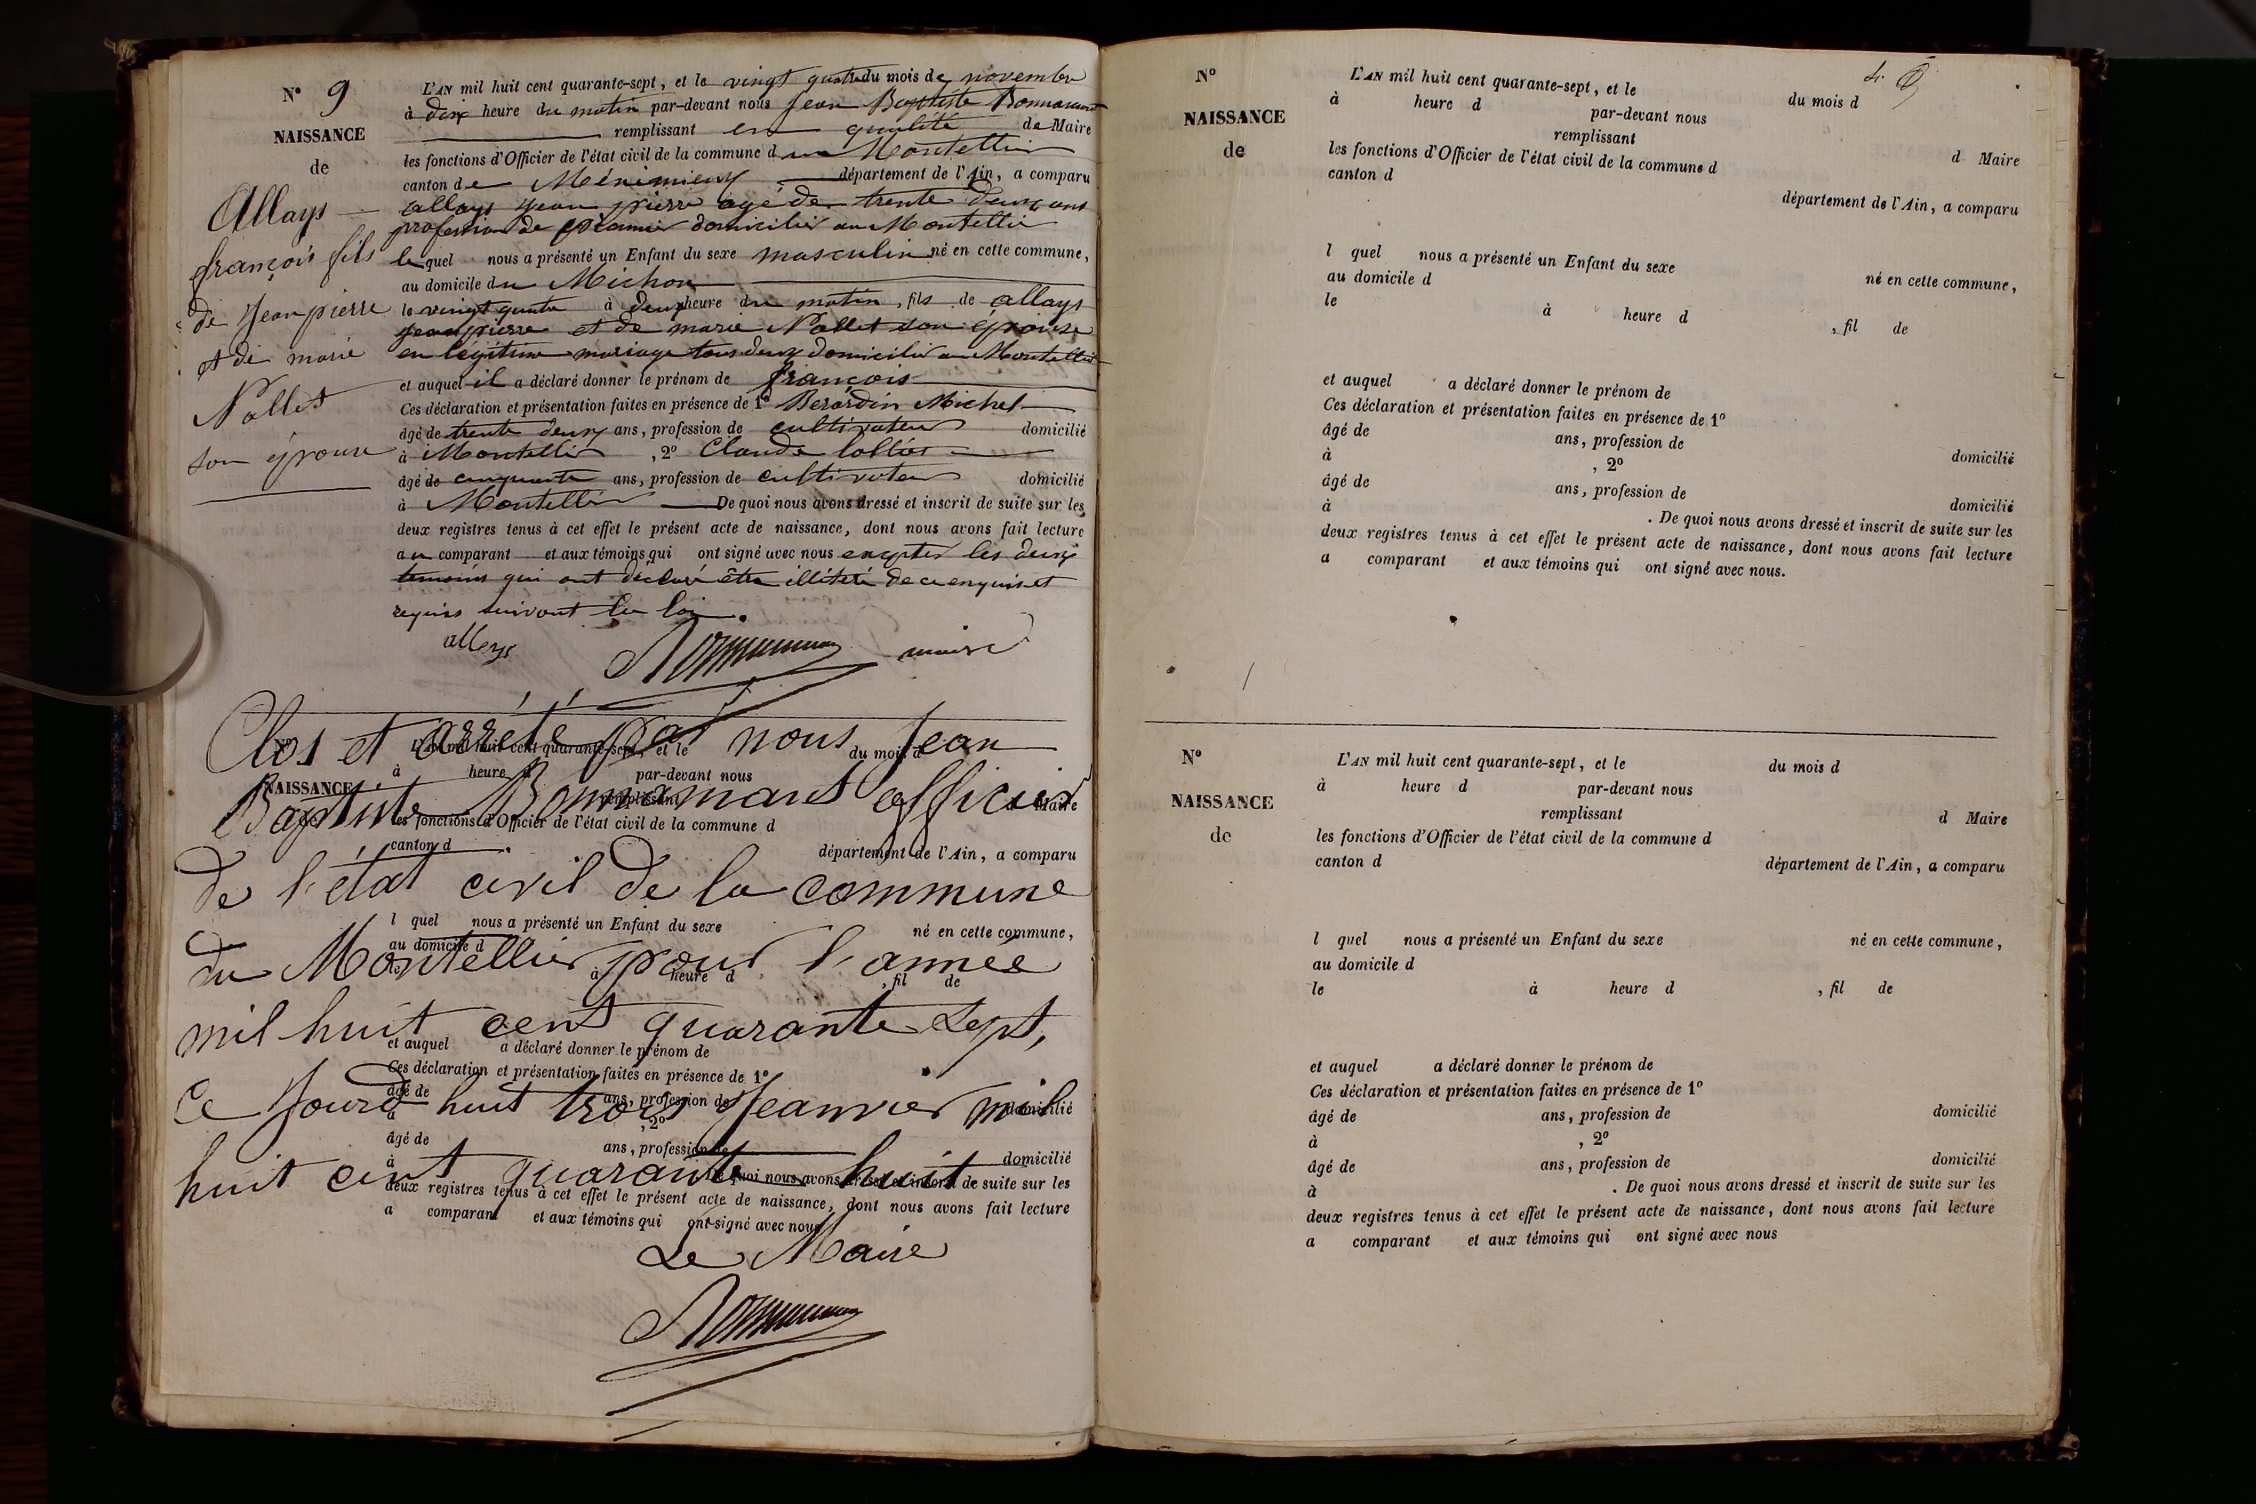 N° 9
NAISSANCE
de
Allays
françois fils
de Jean pierre
et de marie
Nallet
son épouse
L'AN mil huit cent quarante-sept, et le vingt quatre du mois de novembre
à dix heure du matin par-devant nous Jean Baptiste Bonnamant
remplissant en qualité de Maire
les fonctions d'Officier de l'état civil de la commune du Montellier
canton de Méximieux département de l'Ain, a comparu
allays Jean pierre agé de trente deux ans
profession de domicilié au Montellier
le quel nous a présenté un Enfant du sexe masculin né en cette commune,
au domicile du Michon
le vingt quatre à deux heure du matin, fils de allays
Jean pierre et de marie Nallet son épouse
en légitime mariage tous deux domicilié au Montellier
et auquel il a déclaré donner le prénom de françois
Ces déclaration et présentation faites en présence de 1° Berardin Michel
âgé de trente deux ans, profession de cultivateur domicilié
à Montellier, 2° Claude
âgé de cinquante ans, profession de cultivateur domicilié
à Montellier De quoi nous avons dressé et inscrit de suite sur les
deux registres tenus à cet effet le présent acte de naissance, dont nous avons fait lecture
au comparant et aux témoins qui ont signé avec nous excepter les deux
temoins qui ont déclaré être illiteré de ce enquis et
requis suivant la loi.
allays Bonnamant maire
Clos et arrété par nous Jean
L'AN mil huit cent quarante-sept, et le du mois d
à heure d par-devant nous
NAISSANCE
Baptiste Bonnamant officier
remplissant d Maire
les fonctions d'Officier de l'état civil de la commune d
canton d département de l'Ain, a comparu
de l'état civil de la commune
l quel nous a présenté un Enfant du sexe né en cette commune,
au domicile d
du Montellier pour l'année
à heure d , fil de
mil huit cent quarante sept,
et auquel a déclaré donner le prénom de
Ces déclaration et présentation faites en présence de 1°
âgé de ans, profession de domicilié
ce Jourd huit trois Jeanvier mil
à , 2°
âgé de ans, profession de domicilié
huit cent quarante huit
à De quoi nous avons dressé et inscrit de suite sur les
deux registres tenus à cet effet le présent acte de naissance, dont nous avons fait lecture
a comparant et aux témoins qui ont signé avec nous
Le Maire
Bonnamant
N°
NAISSANCE
de
L'AN mil huit cent quarante-sept, et le du mois d
à heure d par-devant nous
remplissant d Maire
les fonctions d'Officier de l'état civil de la commune d
canton d département de l'Ain, a comparu
l quel nous a présenté un Enfant du sexe né en cette commune,
au domicile d
le à heure d , fil de
et auquel a déclaré donner le prénom de
Ces déclaration et présentation faites en présence de 1°
âgé de ans, profession de domicilié
à , 2°
âgé de ans, profession de domicilié
à . De quoi nous avons dressé et inscrit de suite sur les
deux registres tenus à cet effet le présent acte de naissance, dont nous avons fait lecture
a comparant et aux témoins qui ont signé avec nous.
N°
NAISSANCE
de
L'AN mil huit cent quarante-sept, et le du mois d
à heure d par-devant nous
remplissant d Maire
les fonctions d'Officier de l'état civil de la commune d
canton d département de l'Ain, a comparu
l quel nous a présenté un Enfant du sexe né en cette commune,
au domicile d
le à heure d , fil de
et auquel a déclaré donner le prénom de
Ces déclaration et présentation faites en présence de 1°
âgé de ans, profession de domicilié
à , 2°
âgé de ans, profession de domicilié
à . De quoi nous avons dressé et inscrit de suite sur les
deux registres tenus à cet effet le présent acte de naissance, dont nous avons fait lecture
a comparant et aux témoins qui ont signé avec nous